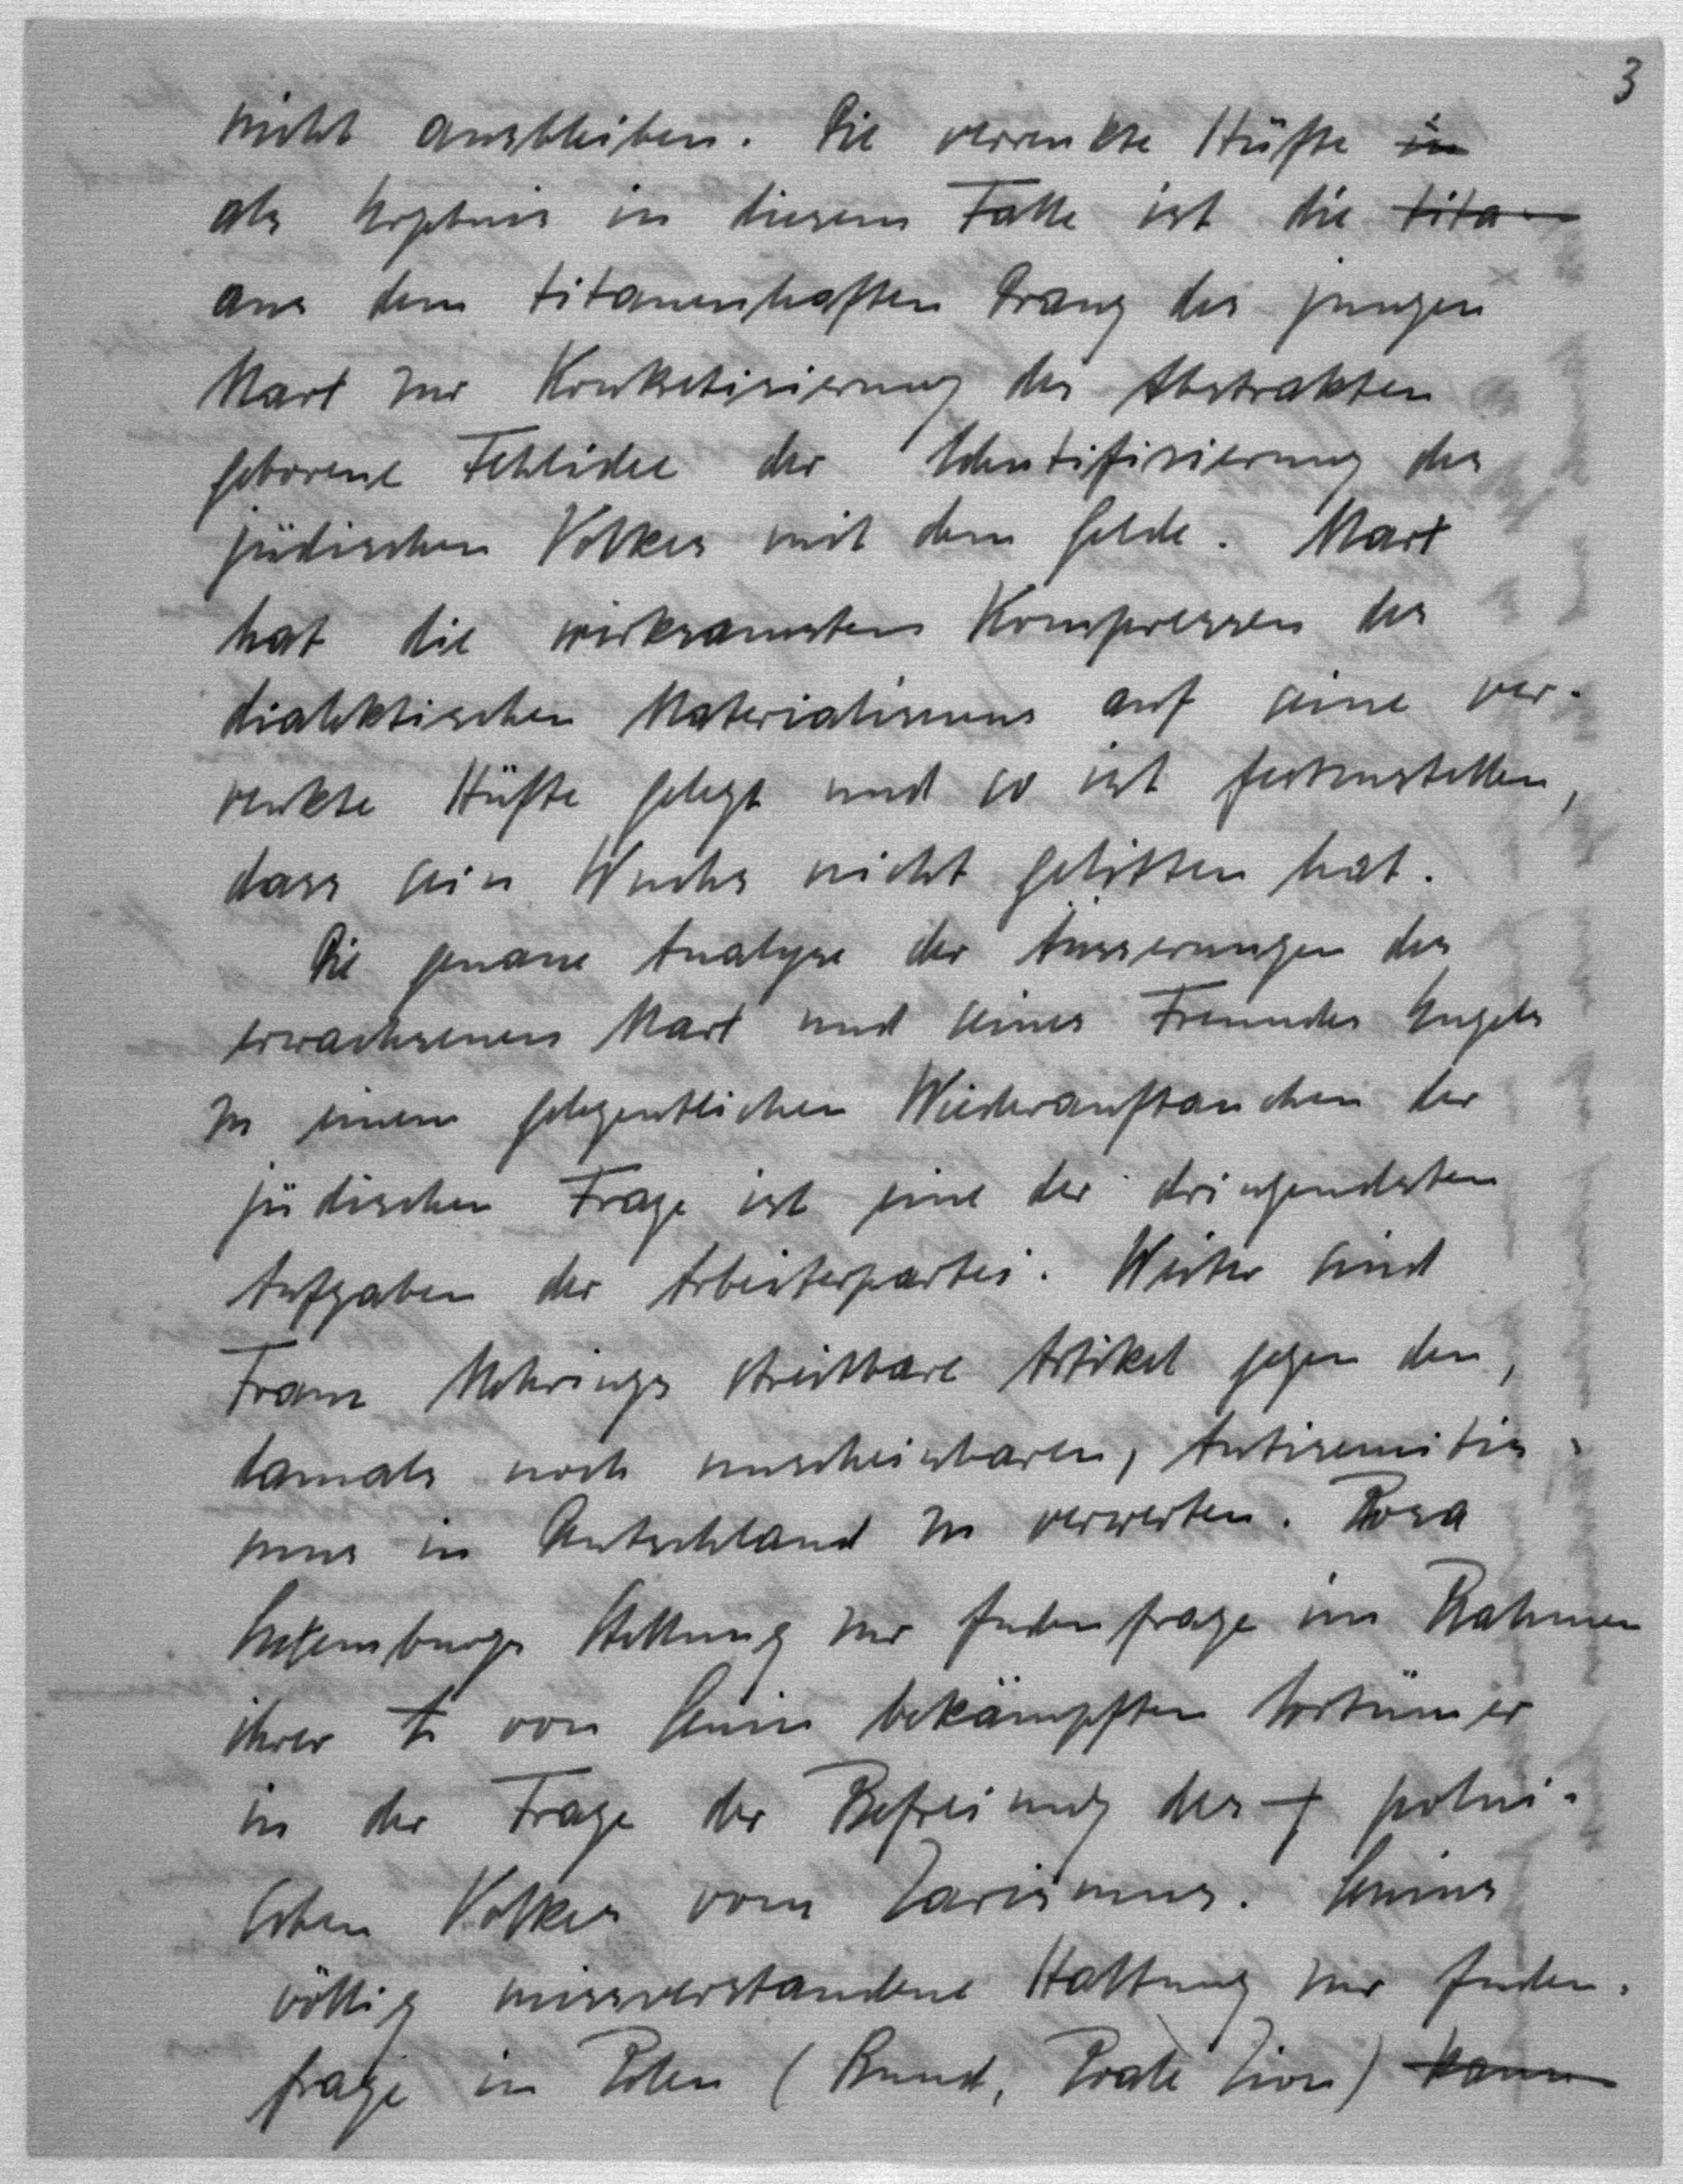 3
nicht ausbleiben. Die verrenkte Hüfte in
als Ergebnis in diesem Falle ist die tita
aus dem titanenhaften Drang des jungen
Marx zur Konkretisierung des Abstrakten
geborene Fehlidee der Identifizierung des
jüdischen Volkes mit dem Gelde. Marx
hat die wirksamsten Kompressen des
dialektischen Materialismus auf seine ver-
renkte Hüfte gelegt und so ist festzustellen,
dass sein Wuchs nicht gelitten hat.
Die genaue Analyse der Äusserungen des
erwachsenen Marx und seines Freundes Engels
zu einem gelegentlichen Wiederauftauchen der
jüdischen Frage ist eine der dringendsten
Aufgaben der Arbeiterpartei. Weiter sind
Franz Mehrings streitbare Artikel gegen den,
damals noch unscheinbaren, Antisemitis-
mus in Deutschland zu verwerten. Rosa
Luxemburgs Stellung zur Judenfrage im Rahmen
ihrer von Lenin bekämpften Irrtümer
in der Frage der Befreiung des polni-
schen Volkes vom Zarismus. Lenins
völlig missverstandene Haltung zur Juden-
frage in Polen (Bund, Poale Zion) kann